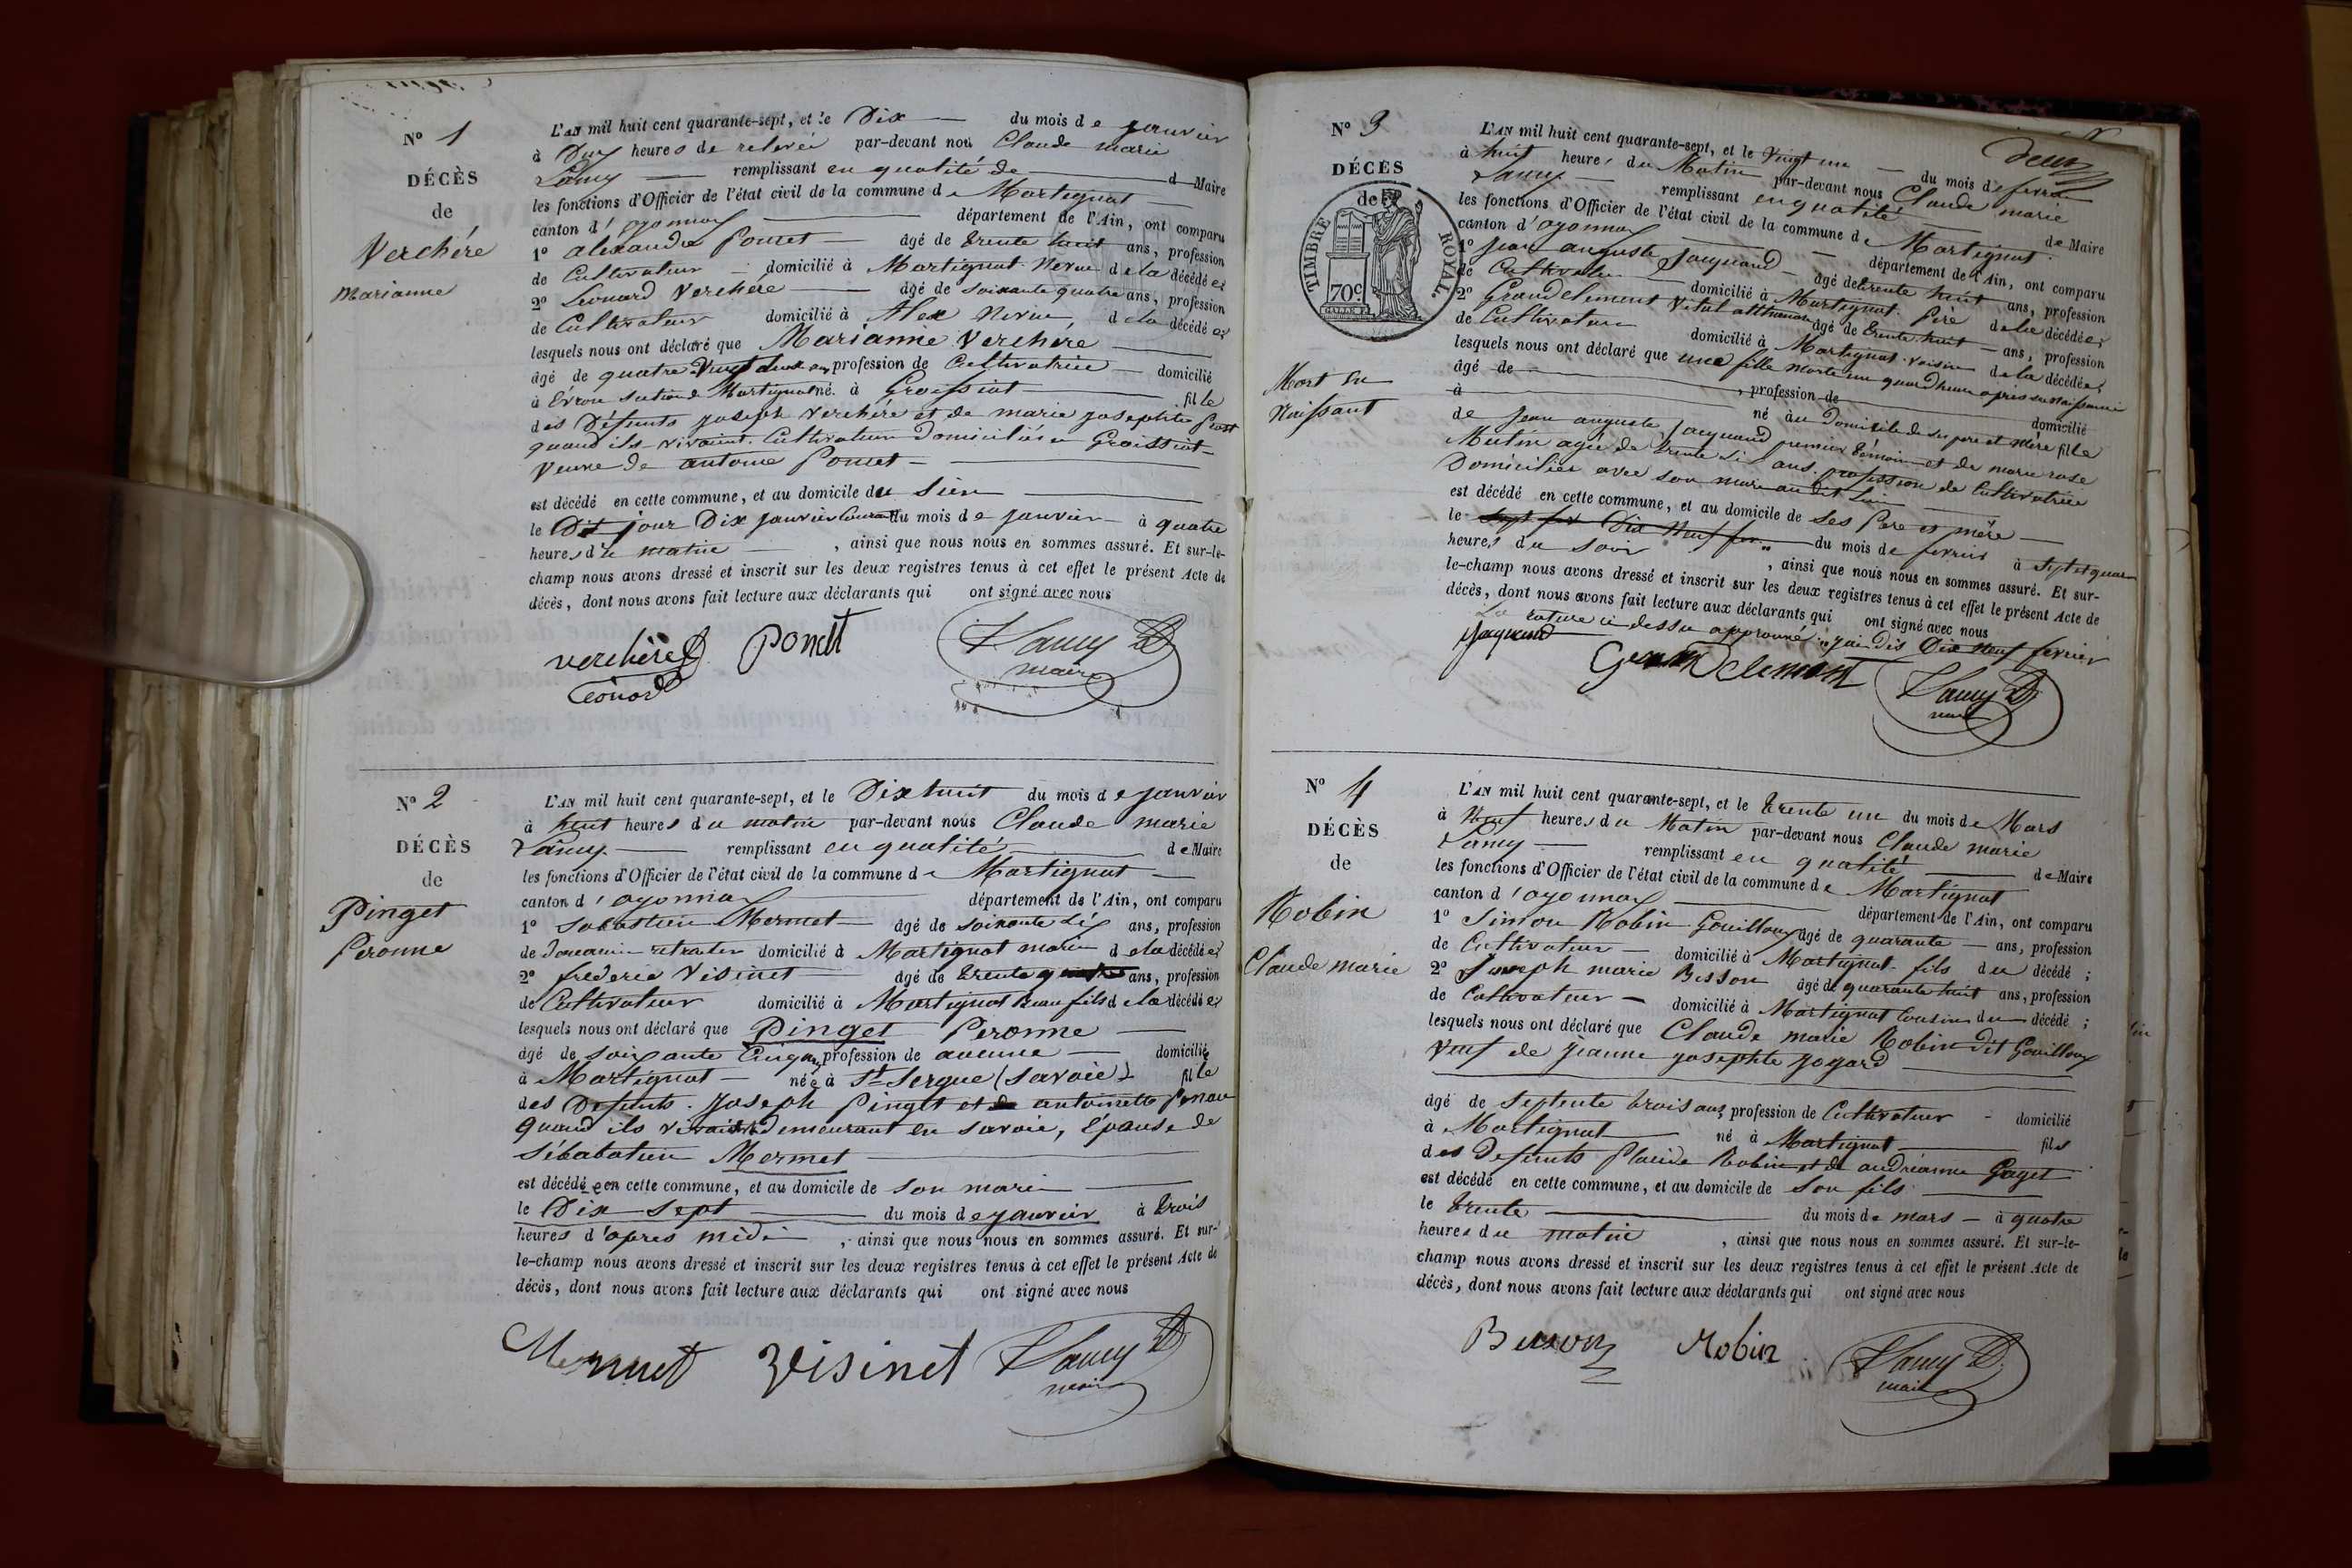 N° 1
DÉCÈS
de
Verchére
Marianne
L'AN mil huit cent quarante-sept, et le Dix du mois de janvier
à Deux heures de relevée par-devant nous Claude marie
Lamy remplissant en qualité de d Maire
les fonctions d'Officier de l'état civil de la commune de Martignat
canton d'oyonnax département de l'Ain, ont comparu
1° alexandre Poncet âgé de trente huit ans, profession
de Cultivateur domicilié à Martignat Neveu de la décédée;
2° Léonard Verchère âgé de soixante quatre ans, profession
de Cultivateur domicilié à Alex Neveu de la décédée;
lesquels nous ont déclaré que Marianne Verchère
âgé de quatre Vingt deux ans profession de Cultivatrice domicilié
à Evron section de Martignat né à Groissiat fille
des Défunts joseph Verchére et de marie josephte
quand ils vivaient Cultivateurs Domiciliés a Groissiat
Veuve de antoine Poncet
est décédé en cette commune, et au domicile du Sien
le Dit jour Dix janvier Courant du mois de janvier à quatre
heures du matin, ainsi que nous nous en sommes assuré. Et sur-le-
champ nous avons dressé et inscrit sur les deux registres tenus à cet effet le présent Acte de
décès, dont nous avons fait lecture aux déclarants qui ont signé avec nous
verchère Poncet Lamy
Léonard maire
N° 2
DÉCÈS
de
Pinget
Peronne
L'AN mil huit cent quarante-sept, et le Dix huit du mois de janvier
à huit heures du matin par-devant nous Claude marie
Lamy remplissant en qualité de Maire
les fonctions d'Officier de l'état civil de la commune de Martignat
canton d'oyonnax département de l'Ain, ont comparu
1° Sebastien Mermet âgé de soixante dix ans, profession
de Douanier retraiter domicilié à Martignat mari de la décédée;
2° frederec Visinet âgé de trente ans, profession
de Cultivateur domicilié à Martignat beau fils de la décédée;
lesquels nous ont déclaré que Pinget Peronne
âgé de soixante Cinq ans, profession de aucune domicilié
à Martignat née à St Sergue (Savoie) fille
des Defunts joseph Pinget et de antoinette
quand ils vivaient demeurant en Savoie, Épouse de
Sébabatien Mermet
est décédée en cette commune, et au domicile de son mari
le Dix Sept du mois de janvier à trois
heures d'apres midi, ainsi que nous nous en sommes assuré. Et sur-
le-champ nous avons dressé et inscrit sur les deux registres tenus à cet effet le présent Acte de
décès, dont nous avons fait lecture aux déclarants qui ont signé avec nous
Mermet Visinet Lamy
maire
N° 3
DÉCÈS
de
TIMBRE ROYAL.
70c
Mort en
Naissant
deux
L'AN mil huit cent quarante-sept, et le Vingt un du mois de
à huit heures du Matin par-devant nous Claude marie
Lamy remplissant en qualité de Maire
les fonctions d'Officier de l'état civil de la commune de Martignat
canton d'oyonnax département de l'Ain, ont comparu
1° Jean auguste Jacquand âgé de trente huit ans, profession
de Cultivateur domicilié à Martignat Père de la décédée;
2° Grandclement Vital âgé de trente huit ans, profession
de Cultivateur domicilié à Martignat Voisin de la décédée;
lesquels nous ont déclaré que une fille morte un quard heure après sa naissance
âgé de, profession de domicilié
à né au Domicile de ses pere et mère fille
de Jean auguste Jacquand premier témoin et de marie rose
Mutin agée de trente six ans profession de Cultivatrice
Domiciliée avec son mari au dit lieu
est décédé en cette commune, et au domicile de ses Pere et mére
le Dix Neuf du mois de fevrier à sept et quart
heures du soir, ainsi que nous nous en sommes assuré. Et sur-
le-champ nous avons dressé et inscrit sur les deux registres tenus à cet effet le présent Acte de
décès, dont nous avons fait lecture aux déclarants qui ont signé avec nous
La rature ci dessu approuvé Dix Neuf fevrier
Jaquand Grandclement Lamy
maire
N° 4
DÉCÈS
de
Robin
Claude marie
L'AN mil huit cent quarante-sept, et le trente un du mois de Mars
à Neuf heures du Matin par-devant nous Claude marie
Lamy remplissant en qualité de Maire
les fonctions d'Officier de l'état civil de la commune de Martignat
canton d'oyonnax département de l'Ain, ont comparu
1° Simon Robin Gouilloux âgé de quarante ans, profession
de Cultivateur domicilié à Martignat fils du décédé;
2° Joseph marie Besson âgé de quarante huit ans, profession
de Cultivateur domicilié à Martignat Cousin du décédé;
lesquels nous ont déclaré que Claude marie Robin dit Gouilloux
Veuf de jeanne josephte jogard
âgé de septente trois ans, profession de Cultivateur domicilié
à Martignat né à Martignat fils
des Defunts Placide Robin et de andréanne Gaget
est décédé en cette commune, et au domicile de son fils
le trente du mois de mars à quatre
heures du matin, ainsi que nous nous en sommes assuré. Et sur-le-
champ nous avons dressé et inscrit sur les deux registres tenus à cet effet le présent Acte de
décès, dont nous avons fait lecture aux déclarants qui ont signé avec nous
Besson Robin Lamy
maire